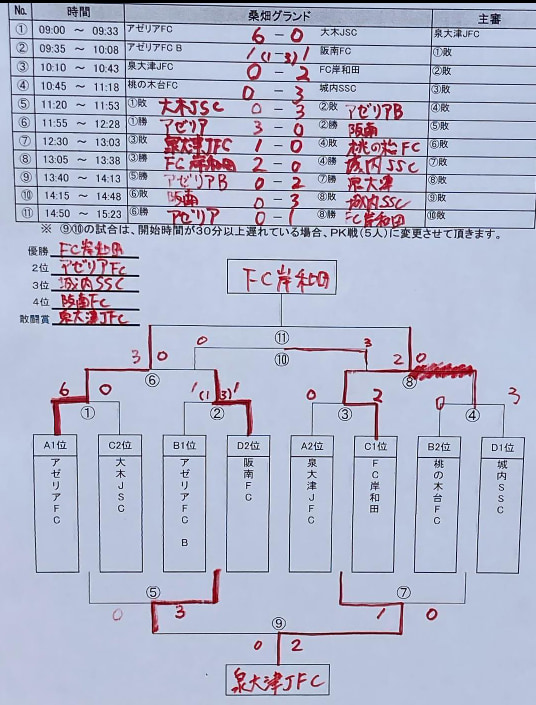 No. 時間 桑畑グランド 主審
① 09:00 ～ 09:33 アゼリアFC 6 - 0 大木JSC 泉大津JFC
② 09:35 ～ 10:08 アゼリアFC B 1 (1-3) 1 阪南FC ①敗
③ 10:10 ～ 10:43 泉大津JFC 0 - 2 FC岸和田 ②敗
④ 10:45 ～ 11:18 桃の木台FC 0 - 3 城内SSC ③敗
⑤ 11:20 ～ 11:53 ①敗 大木JSC 0 - 3 ②敗 アゼリアB ④敗
⑥ 11:55 ～ 12:28 ①勝 アゼリア 3 - 0 ②勝 阪南 ⑤敗
⑦ 12:30 ～ 13:03 ③敗 泉大津JFC 1 - 0 ④敗 桃の台FC ⑥敗
⑧ 13:05 ～ 13:38 ③勝 FC岸和田 2 - 0 ④勝 城内SSC ⑦敗
⑨ 13:40 ～ 14:13 ⑤勝 アゼリアB 0 - 2 ⑦勝 泉大津 ⑧敗
⑩ 14:15 ～ 14:48 ⑥敗 阪南 0 - 3 ⑧敗 城内SSC ⑨敗
⑪ 14:50 ～ 15:23 ⑥勝 アゼリア 0 - 1 ⑧勝 FC岸和田 ⑩敗
※ ⑨⑩の試合は、開始時間が30分以上遅れている場合、PK戦(5人)に変更させて頂きます。
優勝 FC岸和田
2位 アゼリアFC
3位 城内SSC
4位 阪南FC
敢闘賞 泉大津JFC
FC岸和田
⑪
3 0 0 ⑩ 3 2 0
⑥ ⑧
6 0 1 (1-3) 1 0 2 0 3
① ② ③ ④
A1位 C2位 B1位 D2位 A2位 C1位 B2位 D1位
アゼリアFC
大木JSC
アゼリアFC B
阪南FC
泉大津JFC
FC岸和田
桃の木台FC
城内SSC
⑤ ⑦
0 3 1 0
⑨
0 2
泉大津JFC